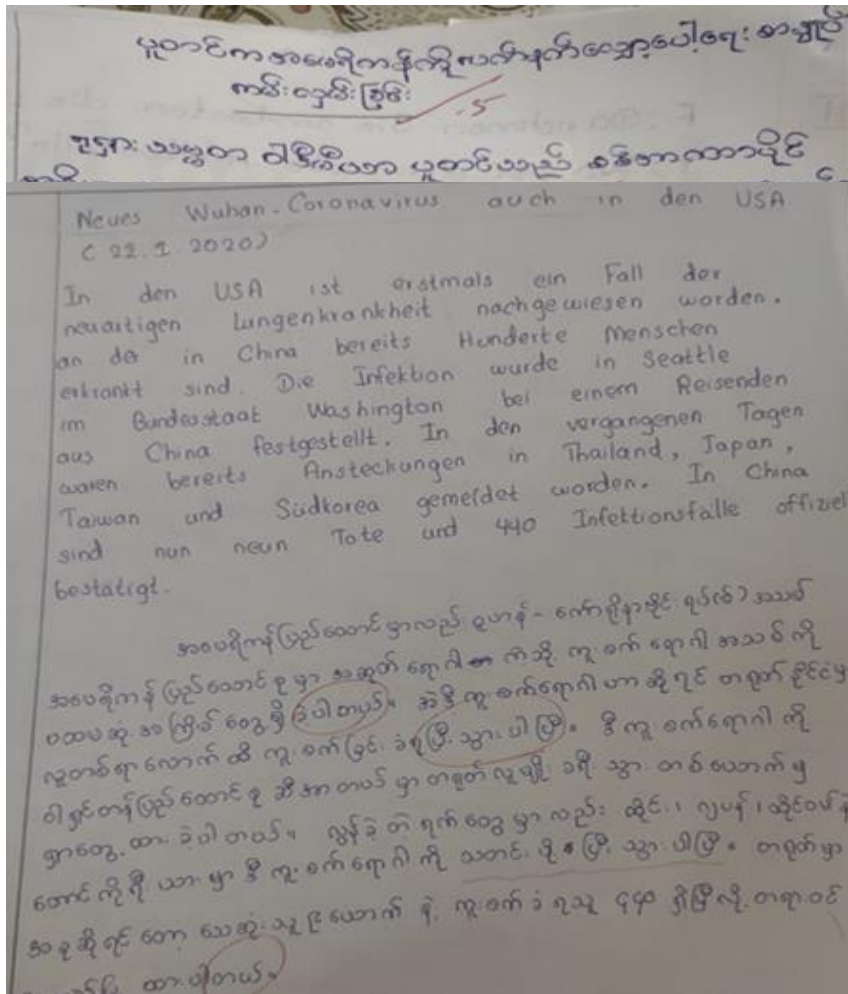 ပူတင်က အမေရိကန်ကို လက်နက်လျှော့ပေါ့ရေး စာချုပ်
ကမ်းလှမ်းခြင်း
-5
ရုရှား သမ္မတ ဗါဒီမီယာ ပူတင်သည်
Neues Wuhan-Coronavirus auch in den USA
(22.1.2020)
In den USA ist erstmals ein Fall der
neuartigen Lungenkrankheit nachgewiesen worden.
an der in China bereits Hunderte Menschen
erkrankt sind. Die Infektion wurde in Seattle
im Bundesstaat Washington bei einem Reisenden
aus China festgestellt. In den vergangenen Tagen
waren bereits Ansteckungen in Thailand, Japan,
Taiwan und Südkorea gemeldet worden. In China
sind nun neun Tote und 440 Infektionsfälle offiziel
bestätigt.
အမေရိကန်ပြည်ထောင်မှာလည်း ဝူဟန် - ကော်ရိုနာဗိုင်းရပ်(စ်) အသစ်
အမေရိကန်ပြည်ထောင်စုမှာ အဆုတ်ရောဂါ ကဲသို့ ကူးစက် ရောဂါ အသစ်ကို
ပထမဆုံးအကြိမ် တွေ့ရှိခဲ့ပါတယ်။ အဲဒီကူးစက်ရောဂါဟာဆိုရင် တရုတ်နိုင်ငံမှ
လူတစ်ရာလောက်ထိ ကူးစက်ခြင်းခံရပြီးသွားပါပြီ။ ဒီကူးစက်ရောဂါကို
ဝါရှင်တန်ပြည်ထောင်စု ဆီအာတယ်မှာ တရုတ်လူမျိုး ခရီးသွားတစ်ယောက်မှ
ရှာတွေ့ထားခဲ့ပါတယ်။ လွန်ခဲ့တဲ့ရက်တွေမှာလည်း ထိုင်း၊ ဂျပန်၊ ထိုင်ဝမ်နဲ့
တောင်ကိုရီးယားမှာ ဒီကူးစက်ရောဂါကို သတင်းပို့ပြီးသွားပါပြီ။ တရုတ်မှာ
အခုဆိုရင်တော့ သေဆုံးသူ ၉ ယောက် နဲ့ ကူးစက်ခံရသူ ၄၄၀ ရှိပြီလို့ တရားဝင်
ထားပါတယ်။